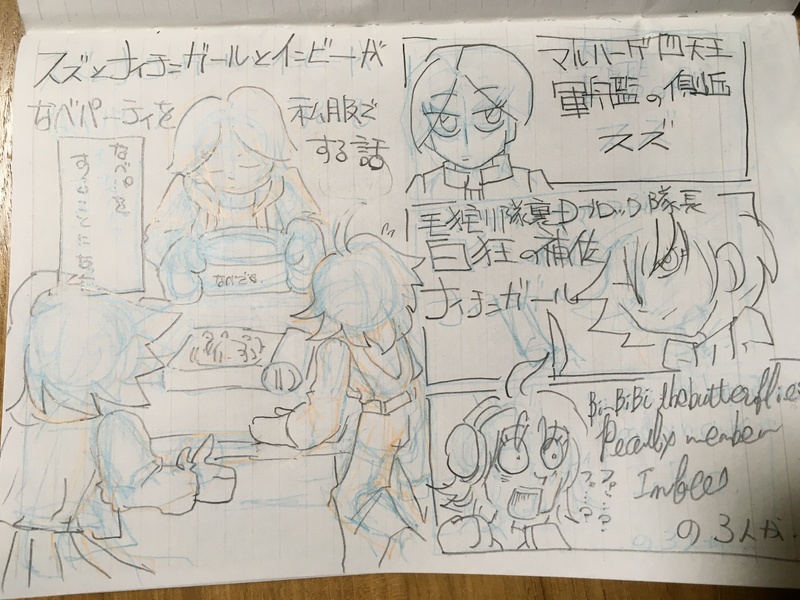 スズとナイチンガールとインビーが
なべパーティを
私服で
する話
なべで。
マルハーゲ四天王
軍艦の側近
スズ
毛狩り隊裏Dブロック隊長
白狂の補佐
ナイチンガール
Bi-BiBi the butterflies
member
の3人が